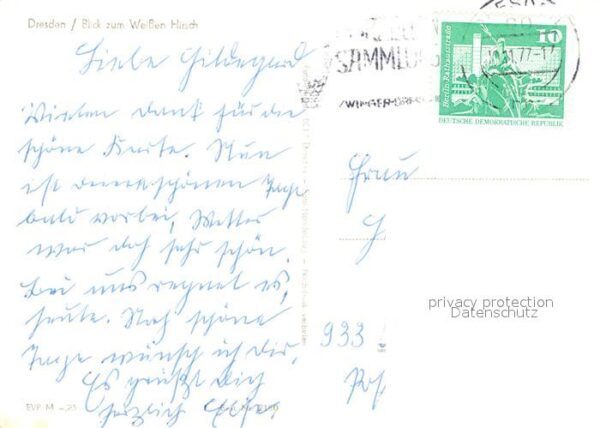 Dresden / Blick zum Weißen Hirsch
Liebe Hildegard
Vielen Dank für die
schöne Karte. Nun
ist schönen Tage
bald vorbei, Wetter
war doch sehr schön.
Bei uns regnet es,
heute. Noch schöne
Tage wünsch ich dir.
Es grüßt dich
herzlich Else
EVP M
SAMMLU
ZWINGER-DRES
.77-17
10
Berlin, Rathausstraße
DEUTSCHE DEMOKRATISCHE REPUBLIK
Frau
privacy protection
Datenschutz
933